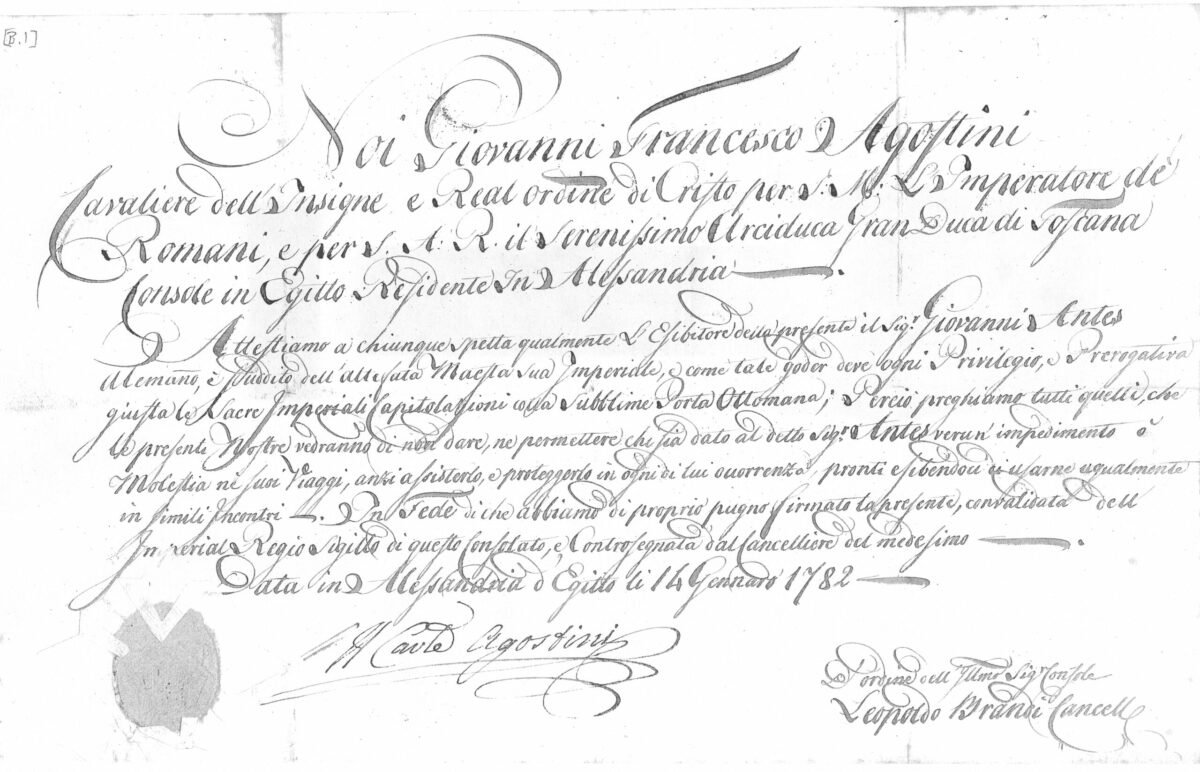 [B.1]
Noi Giovanni Francesco Agostini
Cavaliere dell Insigne e Real ordine di Cristo per S. M: L'Imperatore de'
Romani, e per S. A. R. il Serenissimo Arciduca Gran Duca di Toscana
Console in Egitto Residente In Alessandria
Attestiamo a chiunque spetta qualmente L'Esibitore della presente il Sigr. Giovanni Antes
Alemanno, è Suddito dell'altefata Maesta Sua Imperiale, e come tale goder deve ogni Privilegio, e Prerogativa
giusta le Sacre Imperiali Capitolazzioni colla Subblime Porta Ottomana; Perciò preghiamo tutti quelli, che
le presenti Nostre vedranno di non dare, ne permettere che sia dato al detto Sigr. Antes verun' impedimento ò
Molestia ne suoi Viaggi, anzi assisterlo, e proteggerlo in ogni di lui occorrenza, pronti esibendoci di usarne ugualmente
in simili Incontri. In Fede di che abbiamo di proprio pugno firmato la presente, convalidata dell
Imperial Regio Sigillo di questo Consolato, e Controsegnata dal Cancelliere del medesimo
Data in Alessandria d'Egitto li 14 Gennaro 1782
Agostini
D'ordine dell Illmo Sigr Console
Leopoldo Brandi Cancell